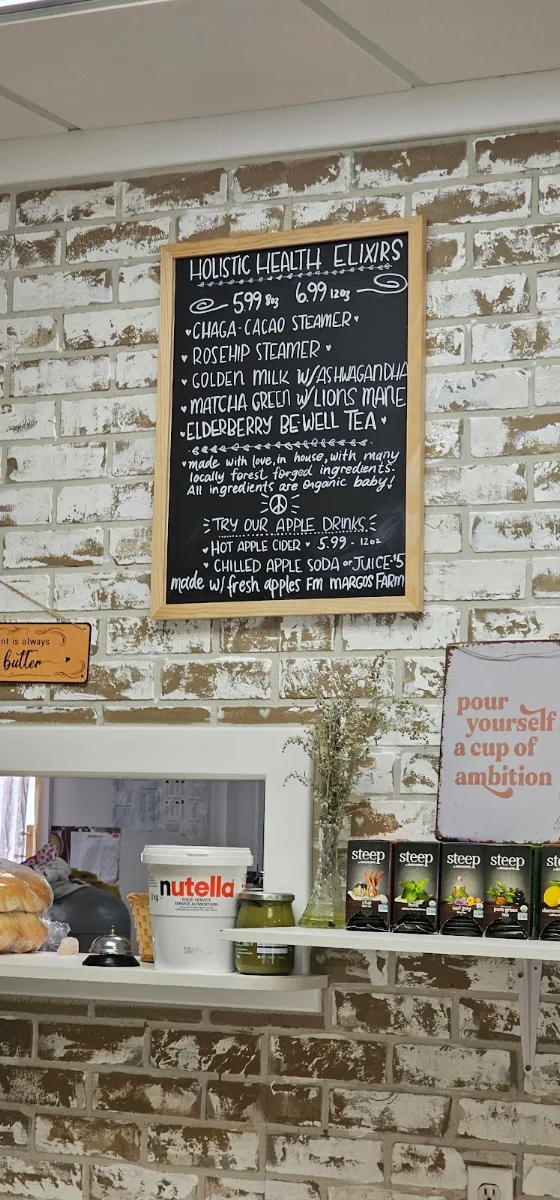 HOLISTIC HEALTH ELIXIRS
5.99 8oz 6.99 12oz
CHAGA-CACAO STEAMER
ROSEHIP STEAMER
GOLDEN MILK W/ASHWAGANDHA
MATCHA GREEN W/LIONS MANE
ELDERBERRY BE WELL TEA
made with love, in house, with many
locally forest forged ingredients.
All ingredients are organic baby!
TRY OUR APPLE DRINKS.
HOT APPLE CIDER • 5.99 - 12oz
CHILLED APPLE SODA or JUICE $5
made w/ fresh apples Fm MARGOS FARM
nt is always
butter
pour
yourself
a cup of
ambition
steep
chai
steep
steep
steep
pure green
nutella
FOOD SERVICE
SERVICE ALIMENTAIRE